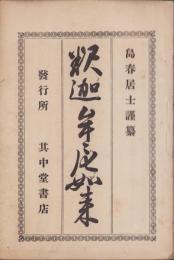 島春居士謹纂
釈迦牟尼如来
發行所　其中堂書店